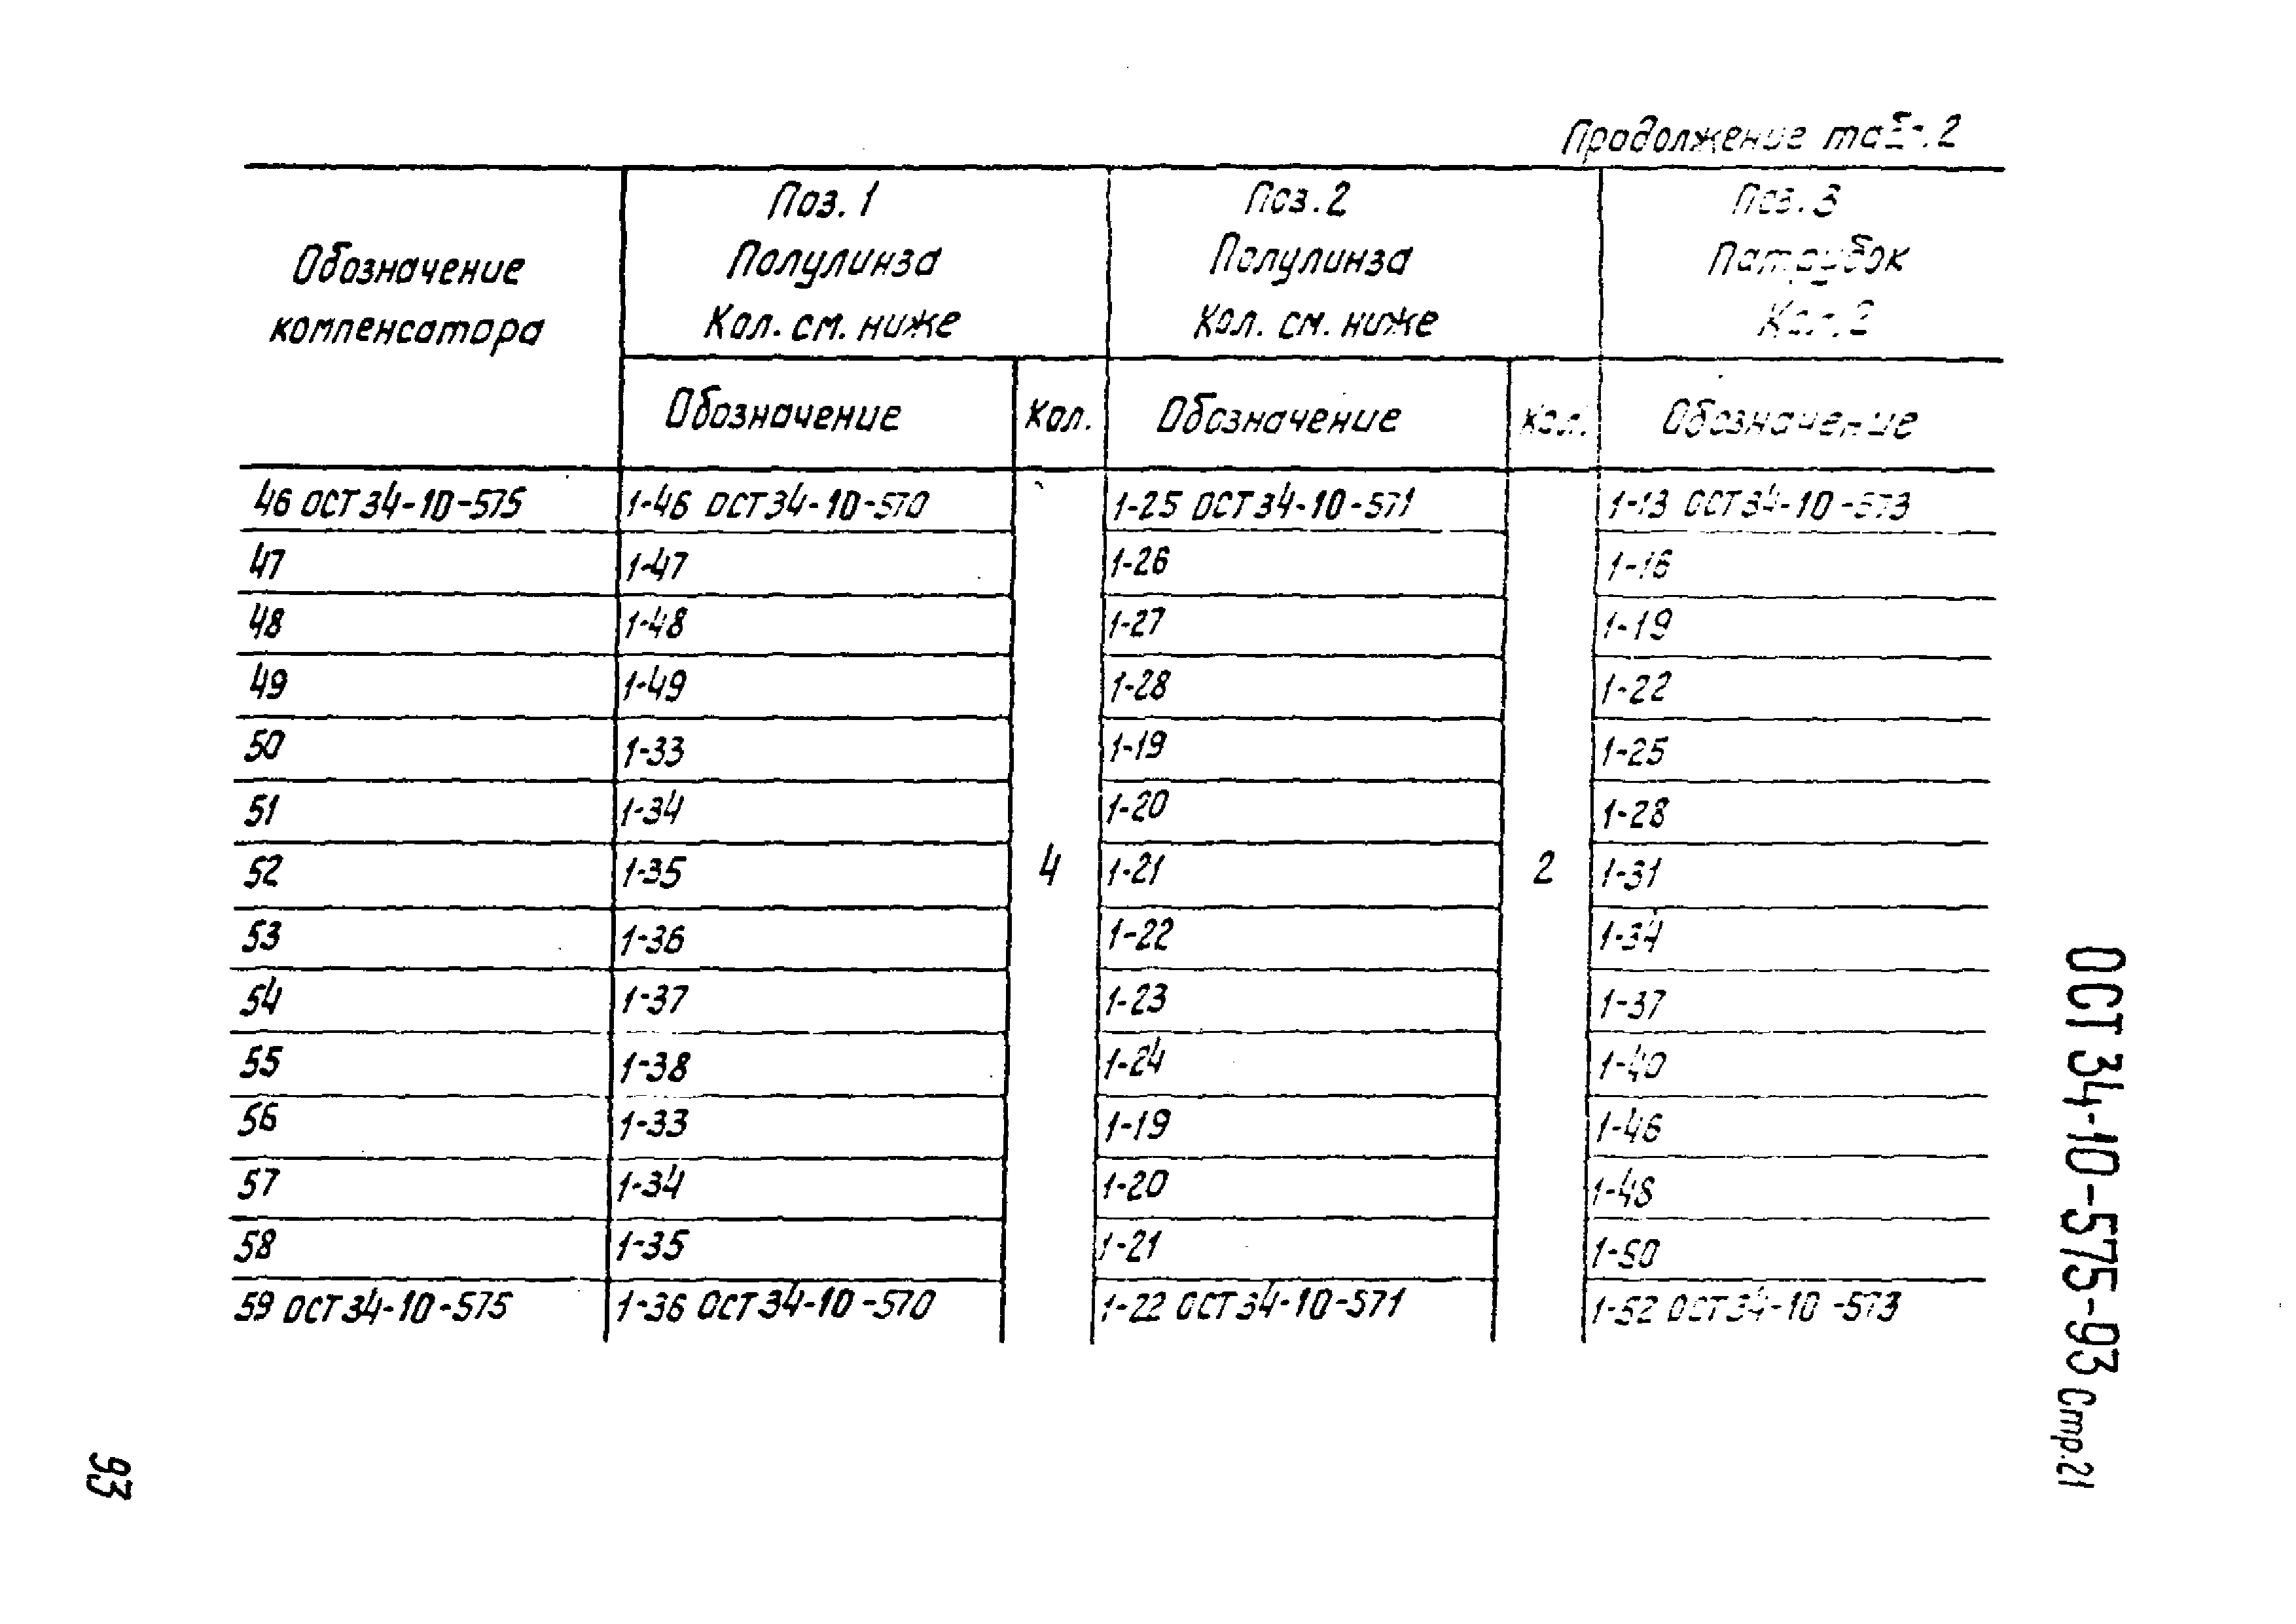 Продолжение табл. 2
Обозначение компенсатора
Поз. 1
Полулинза
Кол. см. ниже
Поз. 2
Полулинза
Кол. см. ниже
Поз. 3
Патрубок
Кол. 2
Обозначение Кол. Обозначение Кол. Обозначение
46 ОСТ 34-10-575 1-46 ОСТ 34-10-570 1-25 ОСТ 34-10-571 1-13 ОСТ 34-10-573
47 1-47 1-26 1-16
48 1-48 1-27 1-19
49 1-49 1-28 1-22
50 1-33 1-19 1-25
51 1-34 1-20 1-28
52 1-35 4 1-21 2 1-31
53 1-36 1-22 1-34
54 1-37 1-23 1-37
55 1-38 1-24 1-40
56 1-33 1-19 1-46
57 1-34 1-20 1-48
58 1-35 1-21 1-50
59 ОСТ 34-10-575 1-36 ОСТ 34-10-570 1-22 ОСТ 34-10-571 1-52 ОСТ 34-10-573
ОСТ 34-10-575-93 Стр. 21
93